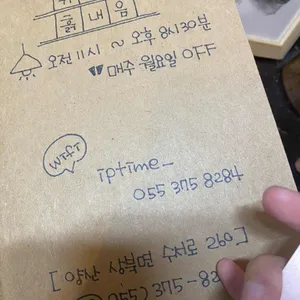 흙 내 음
오전 11시 ~ 오후 8시 30분
매주 월요일 OFF
WIFI
iptime_
055 375 8284
[ 양산 상북면 수서로 260 ]
055) 375-82